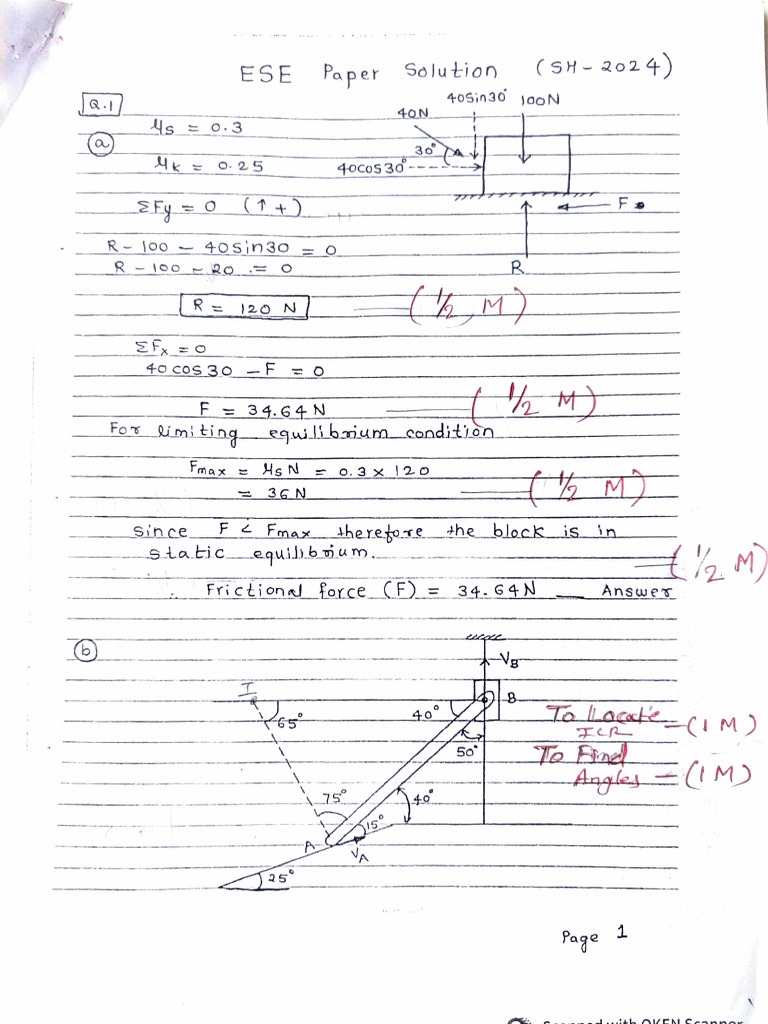 ESE Paper Solution (SH-2024)
Q.1
40sin30° 100N
40N
μs = 0.3
a
30°
μk = 0.25
40cos30°
ΣFy = 0 (↑+)
F
R - 100 - 40sin30 = 0
R - 100 - 20 = 0
R
R = 120 N (1/2 M)
ΣFx = 0
40cos30 - F = 0
F = 34.64 N (1/2 M)
For limiting equilibrium condition
Fmax = μsN = 0.3 x 120
= 36N (1/2 M)
since F < Fmax therefore the block is in
static equilibrium. (1/2 M)
∴ Frictional force (F) = 34.64N — Answer
b
VB
I
B
65°
40°
To Locate ICR - (1 M)
50°
To Find Angles - (1 M)
75°
40°
15°
A
VA
25°
Page 1
Scanned with OKEN Scanner